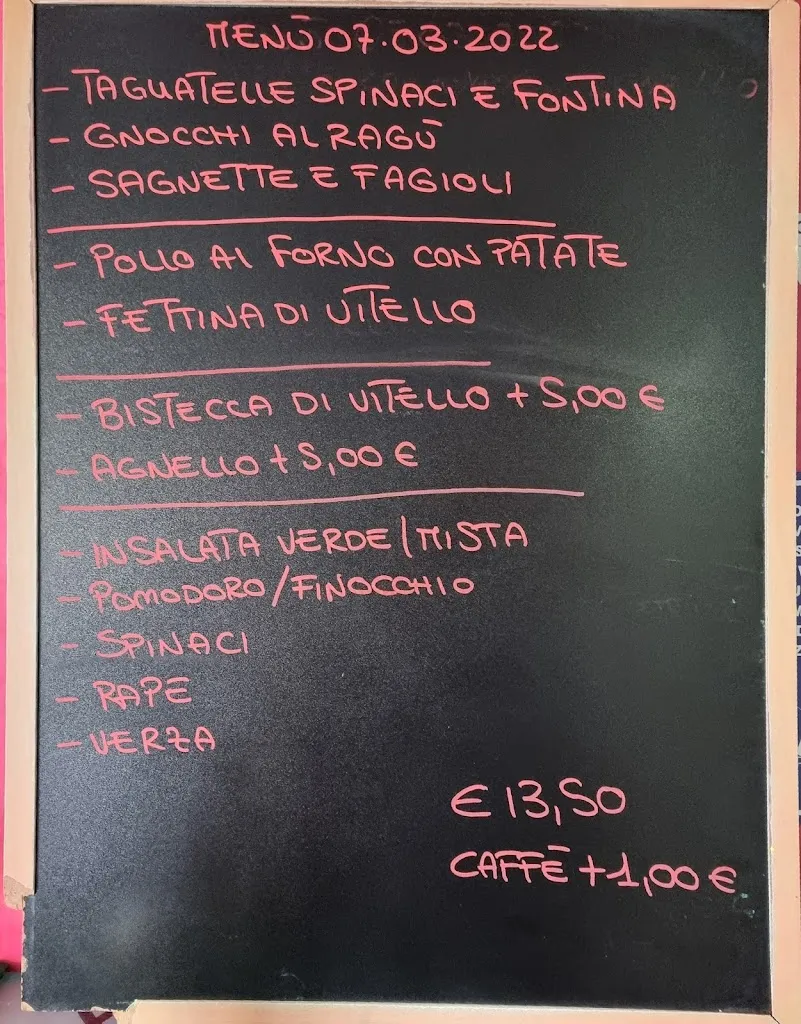 MENÙ 07.03.2022
- TAGLIATELLE SPINACI E FONTINA
- GNOCCHI AL RAGÙ
- SAGNETTE E FAGIOLI
- POLLO AL FORNO CON PATATE
- FETTINA DI VITELLO
- BISTECCA DI VITELLO + 5,00 €
- AGNELLO + 5,00 €
- INSALATA VERDE/MISTA
- POMODORO/FINOCCHIO
- SPINACI
- RAPE
- VERZA
€ 13,50
CAFFÈ +1,00 €